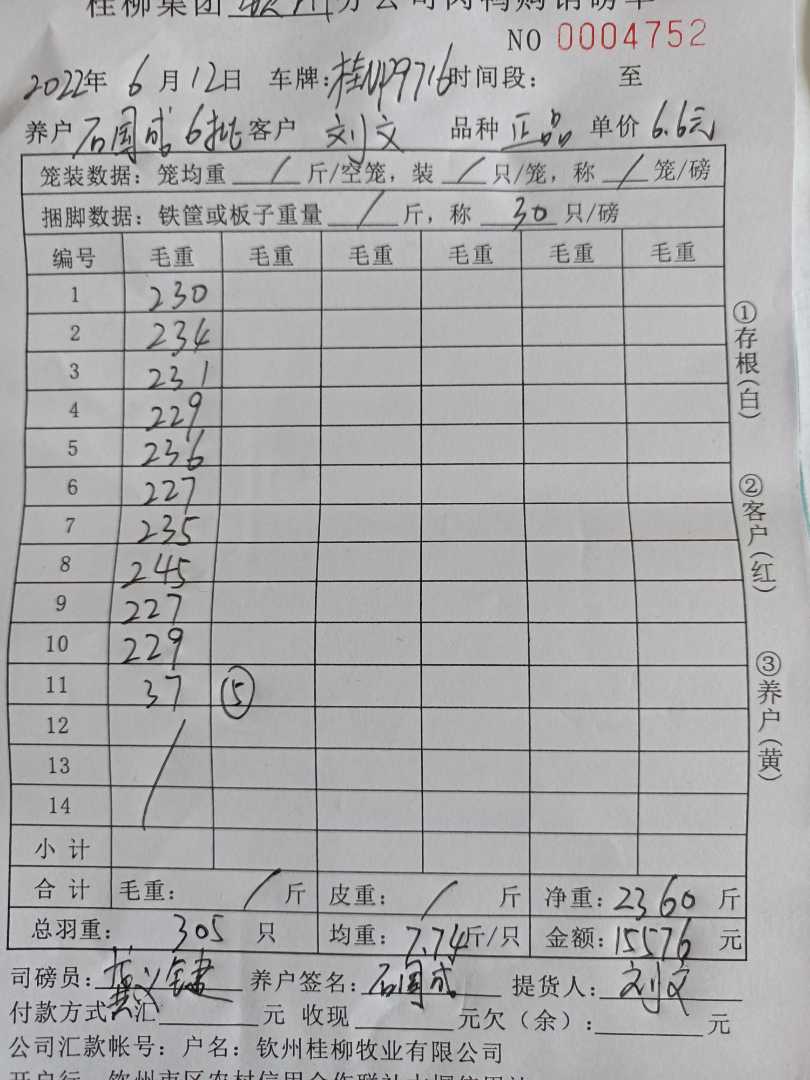 桂柳集团钦州分公司肉鸭购销磅单
NO 0004752
2022年 6月12日 车牌:桂NP9716时间段: 至
养户 石国成 6批 客户 刘文 品种 正品 单价 6.6元
笼装数据: 笼均重 / 斤/空笼, 装 / 只/笼, 称 / 笼/磅
捆脚数据: 铁筐或板子重量 / 斤, 称 30 只/磅
编号 毛重 毛重 毛重 毛重 毛重 毛重
1 230
2 234
3 231
4 229
5 236
6 227
7 235
8 245
9 227
10 229
11 37 ⑤
12
13 /
14
小 计
合 计 毛重: / 斤 皮重: / 斤 净重: 2360 斤
总羽重: 305 只 均重: 7.74斤/只 金额: 15576 元
司磅员: 养户签名: 石国成 提货人: 刘文
付款方式 汇 元 收现 元欠(余): 元
公司汇款帐号: 户名: 钦州桂柳牧业有限公司
①存根(白)
②客户(红)
③养户(黄)